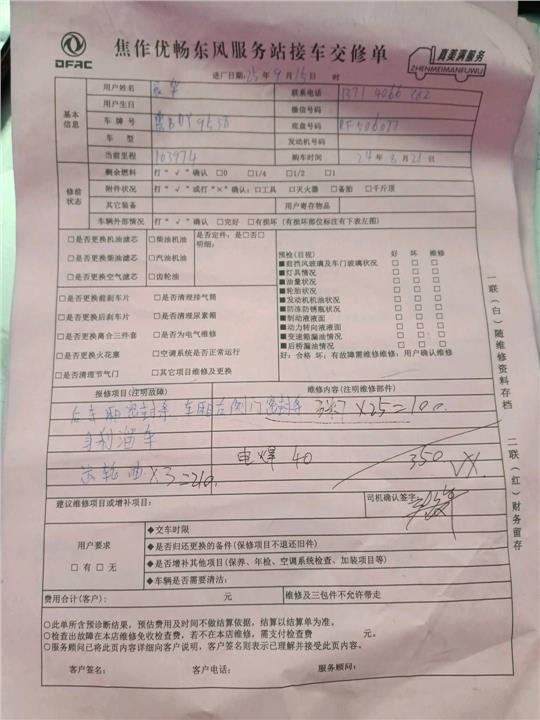 DFAC
焦作优畅东风服务站接车交修单
真美满服务
ZHENMEIMANFUWU
进厂日期:25年9月15日 时
基本信息
用户姓名 联系电话 1371 4066
用户生日 微信号码
车牌号 9538 底盘号码 RF506077
车型 发动机号码
当前里程 103974 购车时间 24年8月21日
修前状态
剩余燃料 打“√”确认 □0 □1/4 □1/2 □1
附件状况 打“√”或打“×”确认:□工具 □灭火器 □备胎 □千斤顶
其它装备 用户寄存物品
车辆外部情况 打“√”确认 □完好 □有损坏(有损坏部位标注有下表左图)
□是否更换机油滤芯 □柴油机油 是否定件:是□否□
明细:
□是否更换柴油滤芯 □汽油机油
□是否更换空气滤芯 □齿轮油
□是否更换前刹车片 □是否清理排气筒
□是否更换后刹车片 □是否清理尿素箱
□是否更换离合三件套 □是否为电气维修
□是否更换火花塞 □空调系统是否正常运行
□是否清理节气门 □其它项目维修及更换
预检(目视) 好 坏 维修
■前挡风玻璃及车门玻璃状况 □ □ □
■灯具情况 □ □ □
■油量状况 □ □ □
■轮胎状况 □ □ □
■发动机机油状况 □ □ □
■防冻防锈瓶状况 □ □ □
■制动液液面 □ □ □
■动力转向液液面 □ □ □
■变速箱漏油情况 □ □ □
■后桥漏油情况 □ □ □
好:合格 坏:有故障需维修维修,用户确认维修
报修项目(注明故障) 维修内容(注明维修部件)
后车厢密封条 车厢右侧门密封条 ×25=100
电焊 40 350
齿轮油×3=210
建议维修项目或增补项目: 司机确认签字:
用户要求
□有 □无
◆交车时限
◆是否归还更换的备件(保修项目不退还旧件)
◆是否增补其他项目(保养、年检、空调系统检查、加装项目等)
◆车辆是否需要清洁:
费用合计(客户): 元 维修及三包件不允许带走
○此单所含预诊断结果,预估费用及时间不做结算依据,结算以结算单为准。
○检查出故障在本店维修免收检查费,若不在本店维修,需支付检查费 元。
○服务顾问已将此页内容详细向客户说明,客户签名则表示已理解并接受此页内容。
客户签名: 客户电话: 服务顾问:
一联(白)随维修资料存档
二联(红)财务留存